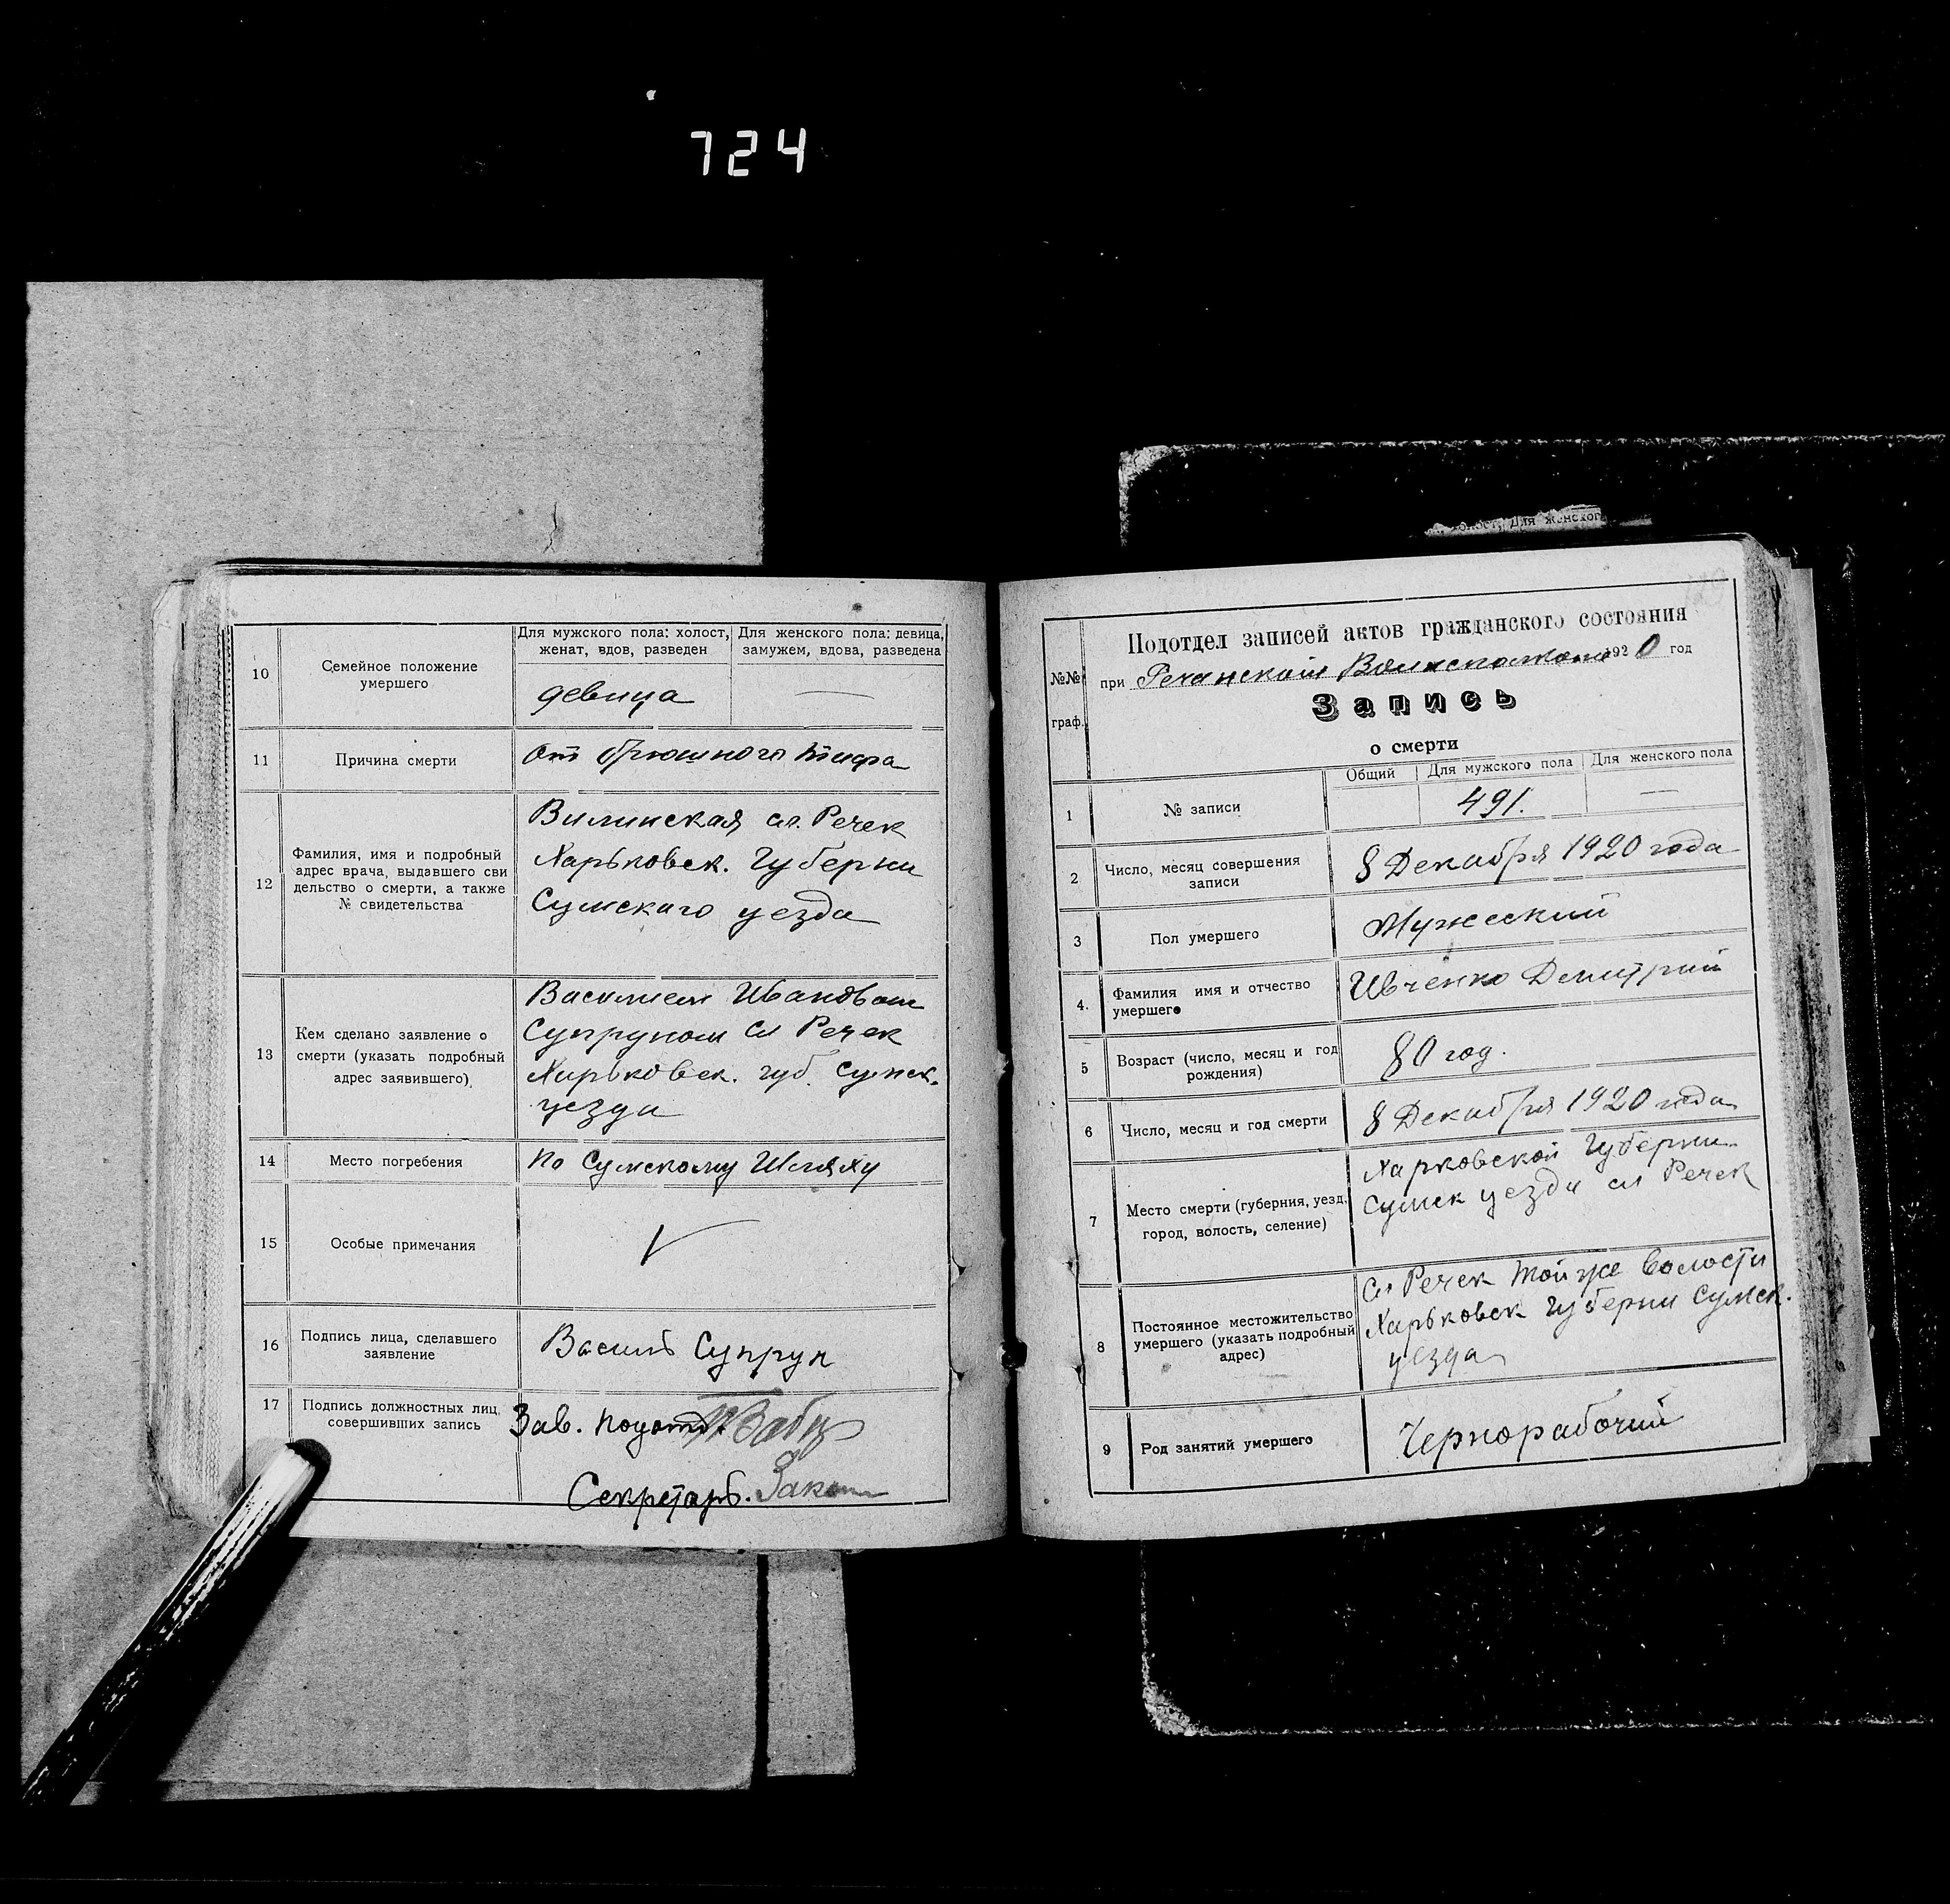 724
олост, Для женског
10
Семейное положение
умершего
Для мужского пола: холост,
женат, вдов, разведен
Для женского пола: девица,
замужем, вдова, разведена
девица
11
Причина смерти
от брюшного тифа
12
Фамилия, имя и подробный
адрес врача, выдавшего сви
дельство о смерти, а также
№ свидетельства
Вилинская сл. Речек
Харьковск. Губерни
Сумскаго уезда
13
Кем сделано заявление о
смерти (указать подробный
адрес заявившего)
Василием Ивановым
Супруном Сл Речек
Харьковск. губ. Сумск.
уезда
14
Место погребения
по Сумскому Шляху
15
Особые примечания
16
Подпись лица, сделавшего
заявление
Василь Супрун
17
Подпись должностных лиц,
совершивших запись
Зав. подотд.
Секретарь.
№№
граф.
Подотдел записей актов гражданского состояния
при Речанском Волисполкоме 1920 год
Запись
о смерти
1
№ записи
Общий
Для мужского пола
Для женского пола
491.
2
Число, месяц совершения
записи
8 Декабря 1920 года
3
Пол умершего
Мужеский
4.
Фамилия имя и отчество
умершего
Ивченко Демитрий
5
Возраст (число, месяц и год
рождения)
80 год.
6
Число, месяц и год смерти
8 Декабря 1920 года
7
Место смерти (губерния, уезд,
город, волость, селение)
Харковской Губерни
Сумск уезда сл Речек
8
Постоянное местожительство
умершего (указать подробный
адрес)
Сл Речек той же волости
Харьковск Губерни Сумск.
уезда
9
Род занятий умершего
Чернорабочий